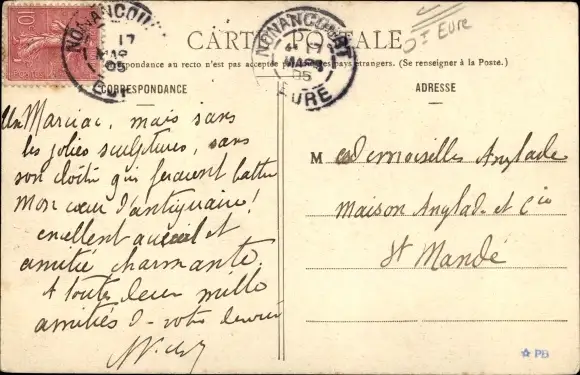 Dt Eure
CARTE POSTALE
NONANCOURT
17
MARS
05
EURE
NONANCOURT
17
MARS
05
EURE
10
La Correspondance au recto n'est pas acceptée par tous les pays étrangers. (Se renseigner à la Poste.)
CORRESPONDANCE
ADRESSE
Un Marciac, mais sans
les jolies sculptures, sans
son cloître qui feraient battre
mon cœur d'antiquaire!
excellent accueil et
amitié charmante.
A toutes deux mille
amitiés d votre
M esdemoiselles Anglade
Maison Anglade et Cie
St Mandé
PB